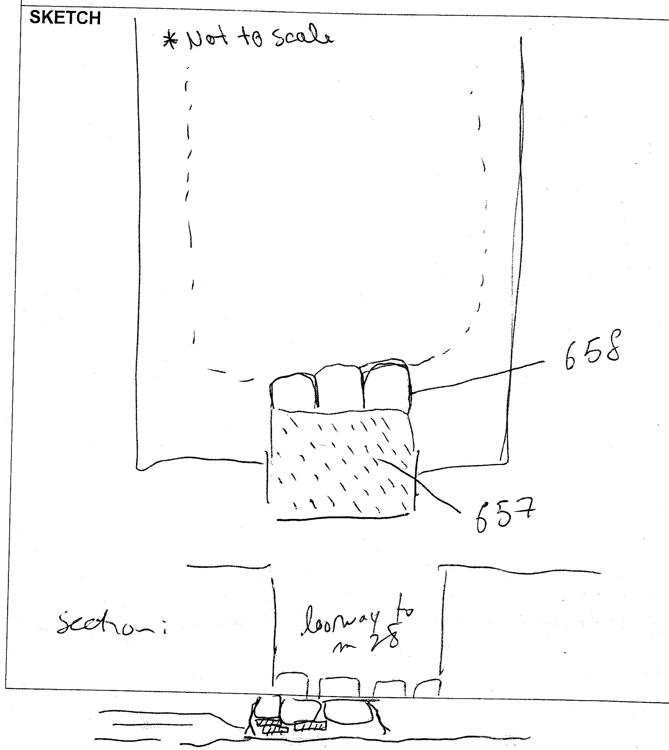 SKETCH
* Not to scale
658
657
section:
doorway to
m 28